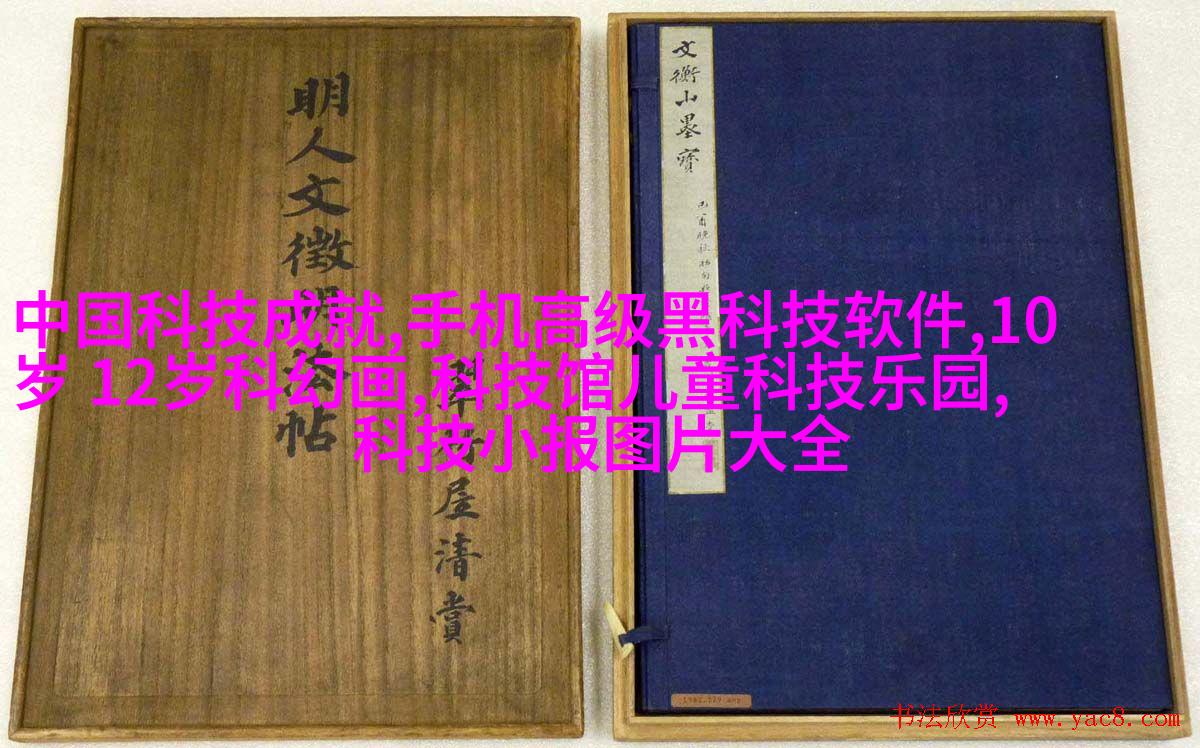 明人文徵明法帖
翠竹屋清賞
文衡山墨寳
中国科技成就,手机高级黑科技软件,10
岁 12岁科幻画,科技馆儿童科技乐园,
科技小报图片大全
书法欣赏 www.yac8.com